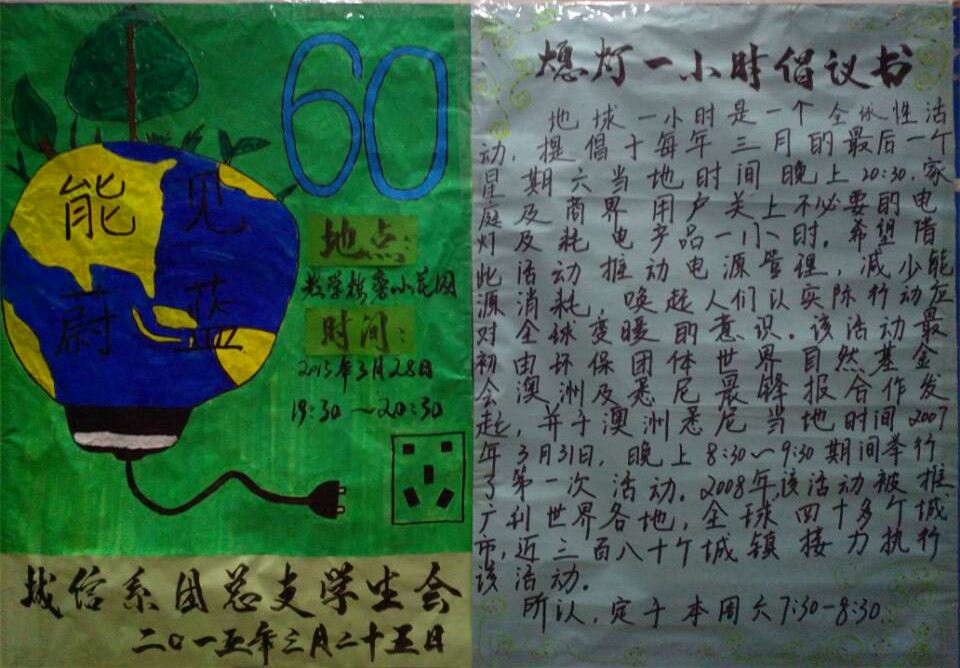 60
能 见
蔚 蓝
地点:
教学楼旁小花园
时间:
2015年3月28日
19:30～20:30
二〇一五年三月二十五日
熄灯一小时倡议书
地球一小时是一个全球性活
动，提倡于每年三月的最后一个
星期六当地时间晚上20:30，家
庭及商界用户关上不必要的电
灯及耗电产品一小时。希望借
此活动推动电源管理，减少能
源消耗，唤起人们以实际行动应
对全球变暖的意识。该活动最
初由环保团体世界自然基金
会澳洲及悉尼晨锋报合作发
起，并于澳洲悉尼当地时间2007
年3月31日，晚上8:30～9:30期间举行
了第一次活动。2008年，该活动被推
广到世界各地，全球四十多个城
市，近三百八十个城镇接力执行
该活动。
所以，定于本周六7:30-8:30